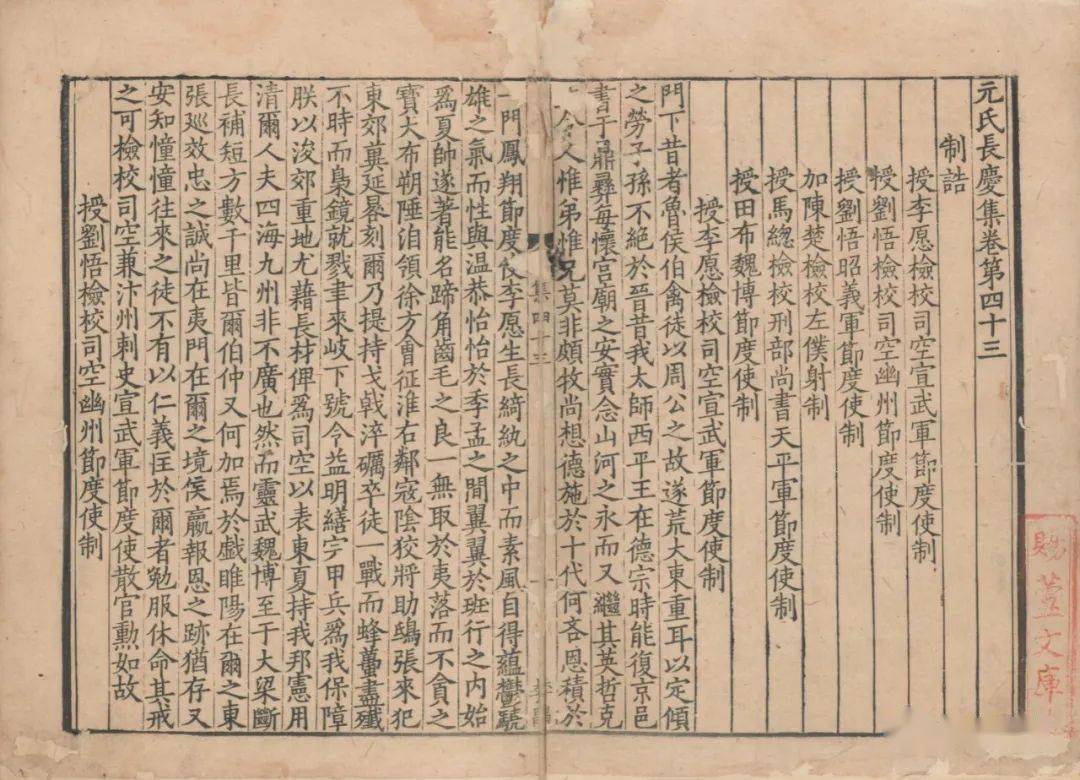 元氏長慶集卷第四十三
制誥
授李愿檢校司空宣武軍節度使制
授劉悟檢校司空幽州節度使制
授劉悟昭義軍節度使制
加陳楚檢校左僕射制
授馬緫檢校刑部尚書天平軍節度使制
授田布魏博節度使制
授李愿檢校司空宣武軍節度使制
門下昔者魯侯伯禽徒以周公之故遂荒大東重耳以定傾
之勞子孫不絕於晉昔我太師西平王在德宗時能復京邑
書于鼎彝每懷宫廟之安實念山河之永而又繼其英哲克
令人惟弟惟兄莫非頗牧尚想德施於十代何吝恩積於
一門鳳翔節度使李愿生長綺紈之中而素風自得藴鬱驍
雄之氣而性與温恭怡怡於季孟之間翼翼於班行之内始
爲夏帥遂著能名蹄角齒毛之良一無取於夷落而不貪之
寶大布朔陲洎領徐方會征淮右鄰寇陰狡將助鴟張來犯
東郊蓂延晷刻爾乃提持戈戟淬礪卒徒一戰而蜂蠆盡殲
不時而梟鏡就戮聿來岐下號令益明繕宇甲兵爲我保障
朕以浚郊重地尤藉長材俾爲司空以表東夏持我邦憲用
清爾人夫四海九州非不廣也然而靈武魏博至于大梁斷
長補短方數千里皆爾伯仲又何加焉於戲睢陽在爾之東
張廵效忠之誠尚在夷門在爾之境侯嬴報恩之跡猶存又
安知憧憧往來之徒不有以仁義匡於爾者勉服休命其戒
之可檢校司空兼汴州刺史宣武軍節度使散官勳如故
授劉悟檢校司空幽州節度使制
集四十三
賜蘆文庫